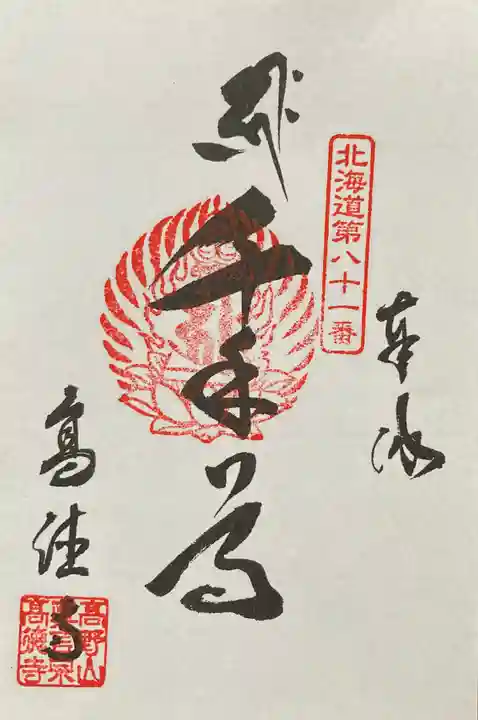 北海道第八十一番
奉拝
千手尊
高徳寺
高野山
真言宗
高徳寺